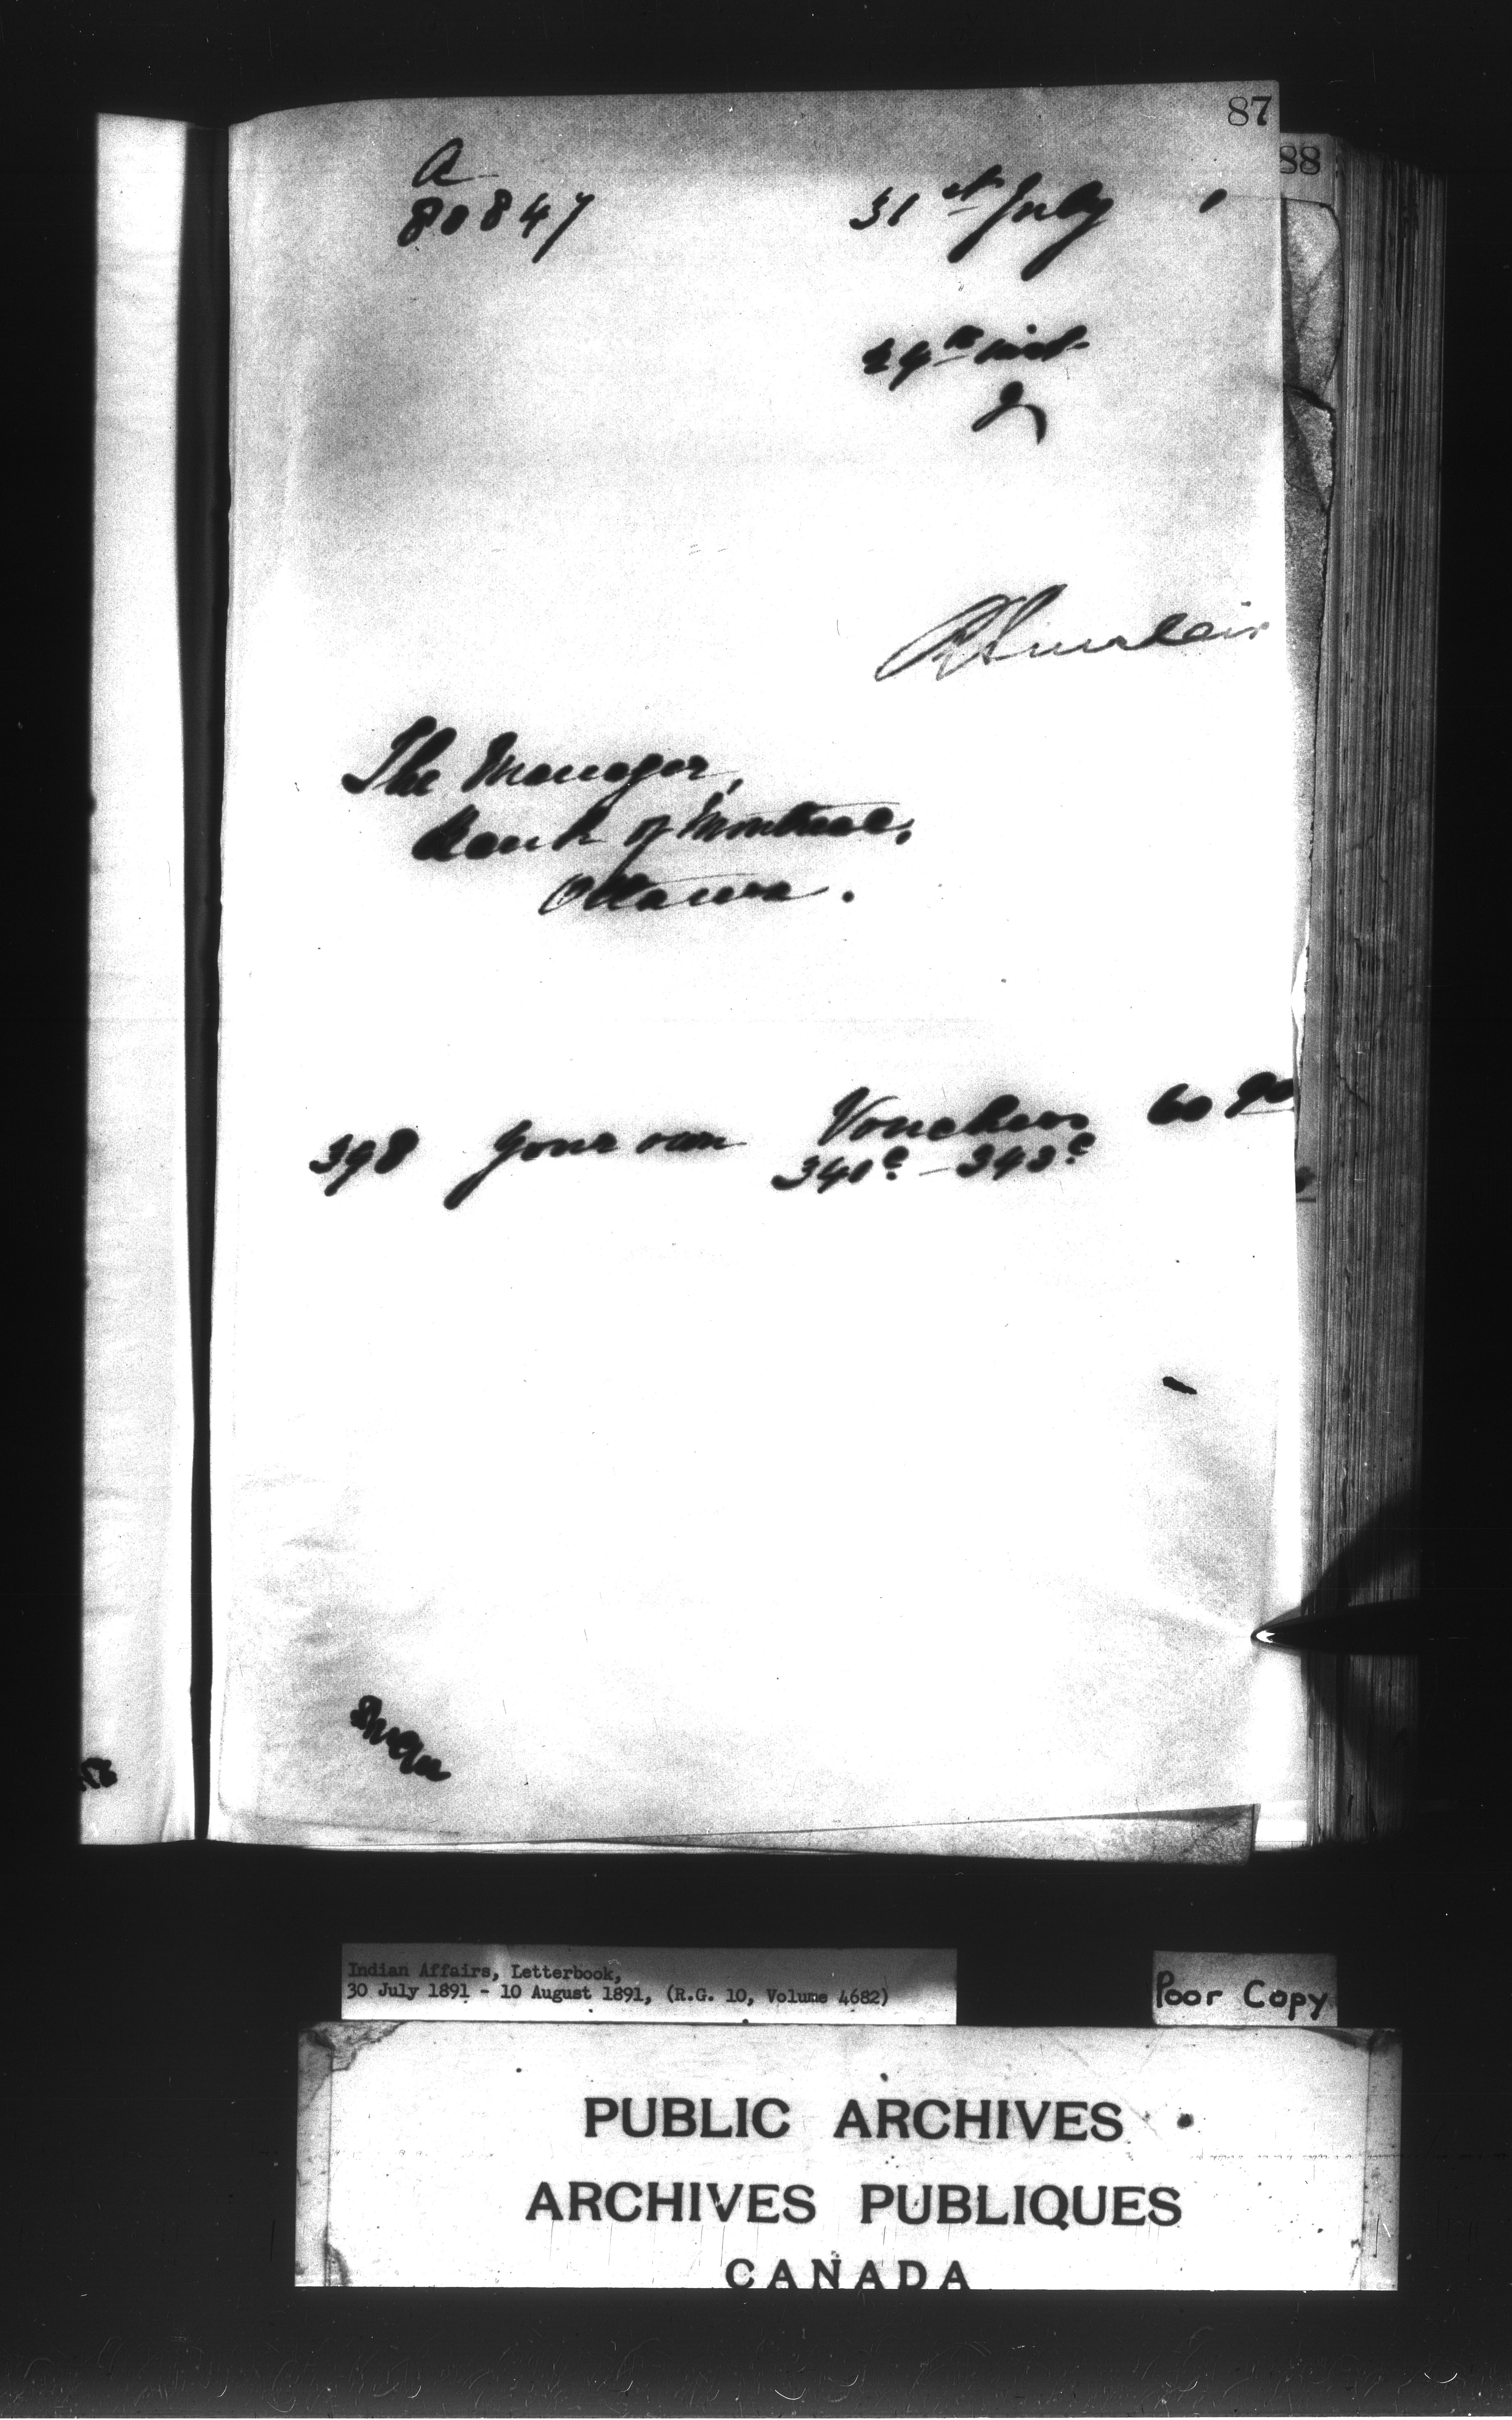 87
88
A
80847
31st July 1
29th inst
R Sinclair
The Manager,
Bank of Montreal,
Ottawa.
398 your own Vouchers 60 90
341c - 343c
Indian Affairs, Letterbook,
30 July 1891 - 10 August 1891, (R.G. 10, Volume 4682)
Poor Copy
PUBLIC ARCHIVES
ARCHIVES PUBLIQUES
CANADA